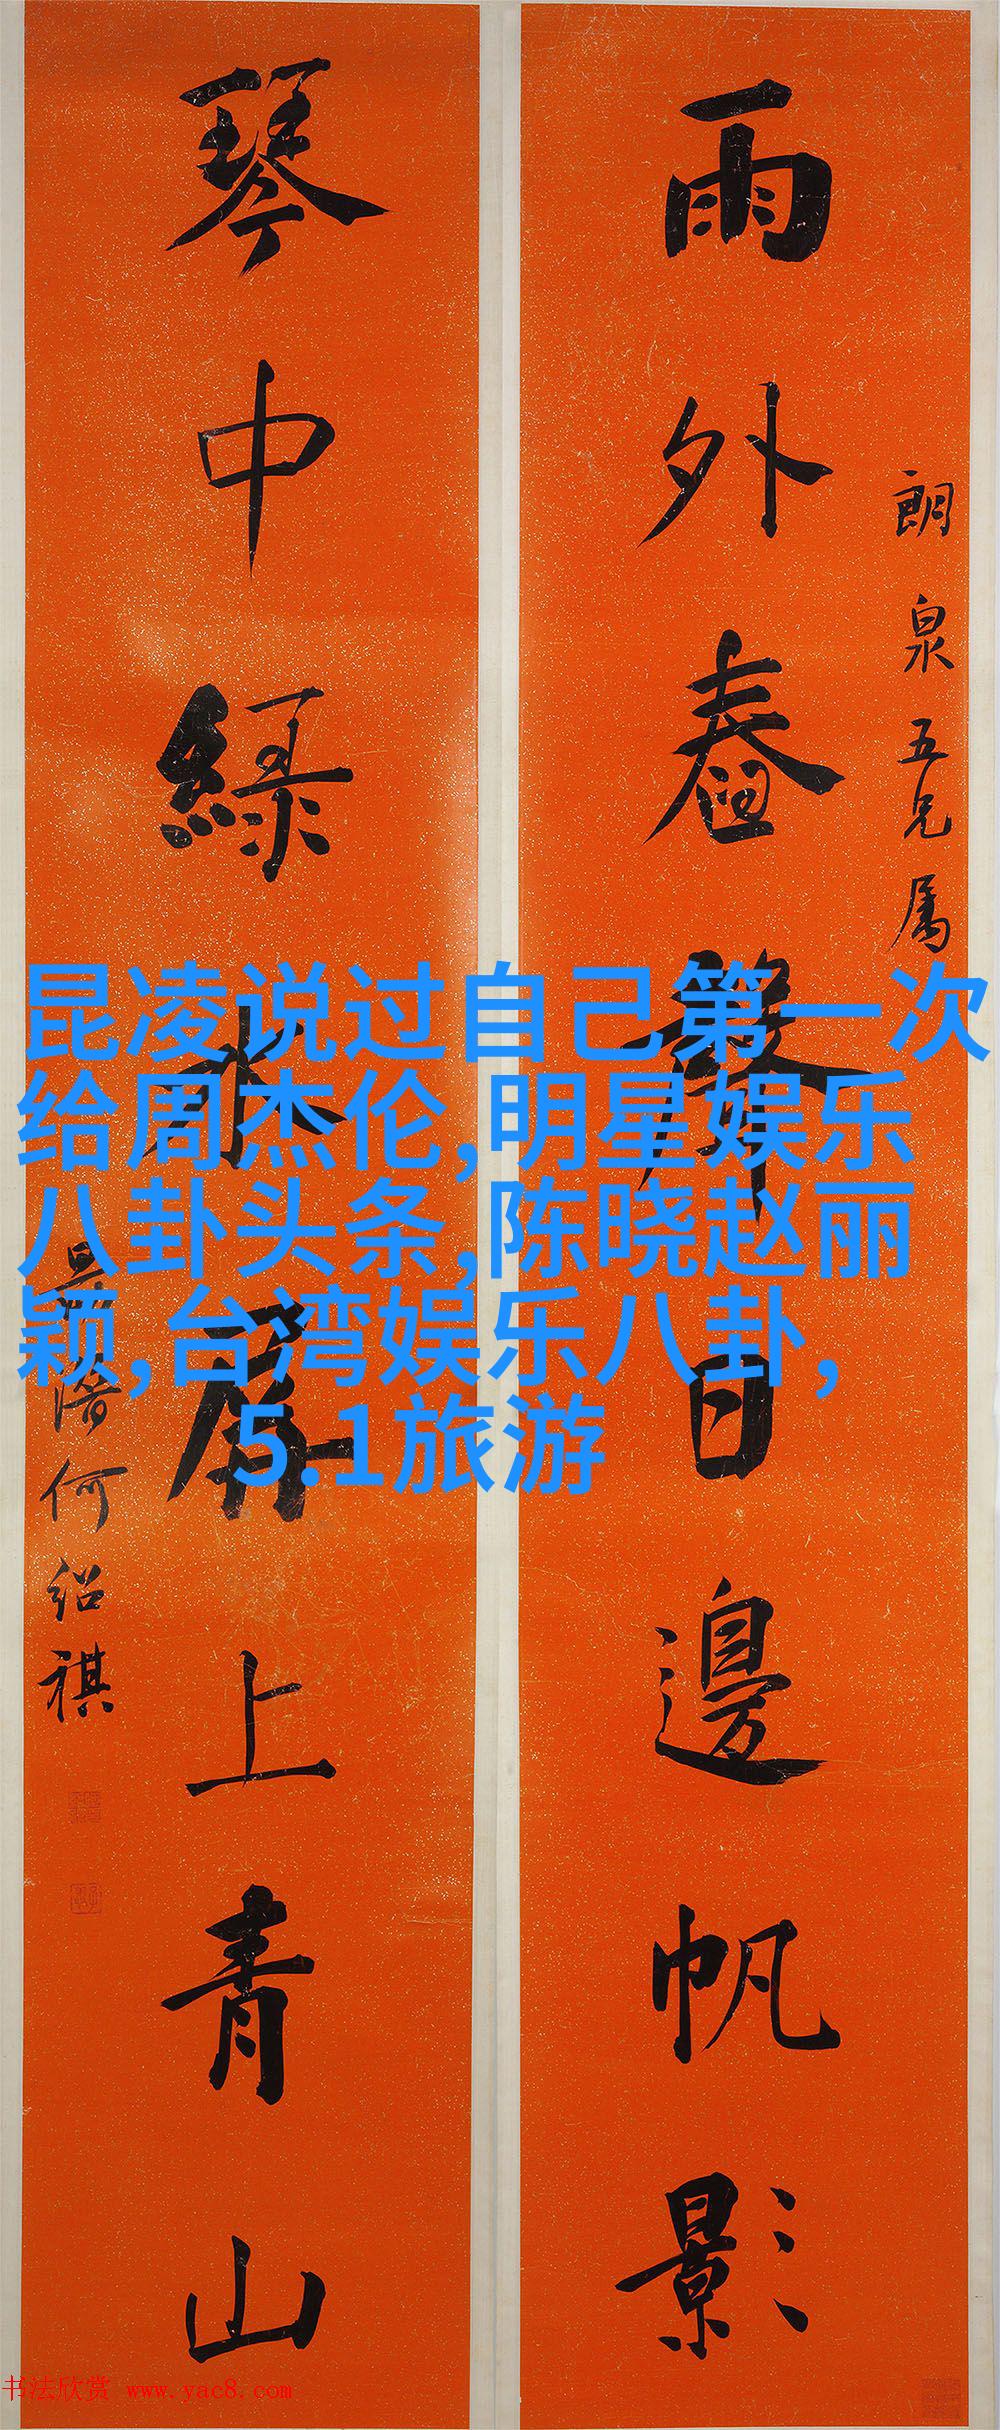 朗泉五兄屬
雨外舂聲日邊帆影
琴中綠水屏上青山
何紹祺
昆凌说过自己第一次
给周杰伦,明星娱乐
八卦头条,陈晓赵丽
颖,台湾娱乐八卦,
5.1旅游
书法欣赏 www.yac8.com